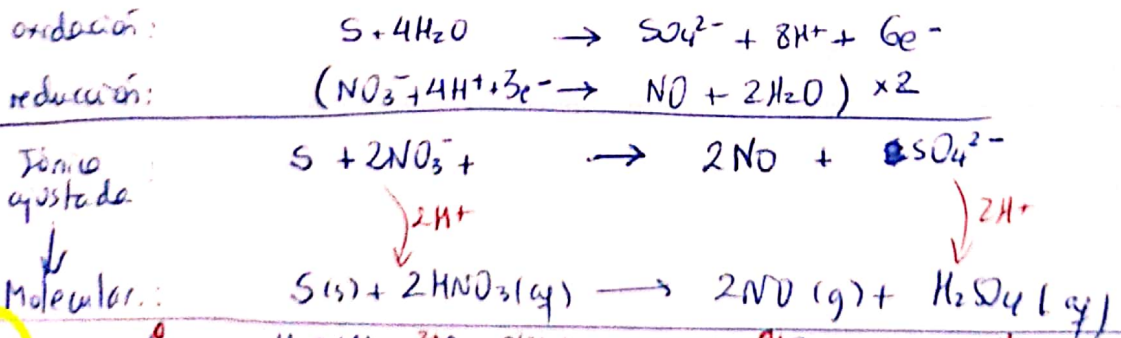 oxidación: S + 4H₂O → SO₄²⁻ + 8H⁺ + 6e⁻
reducción: (NO₃⁻ + 4H⁺ + 3e⁻ → NO + 2H₂O) x2
Iónica S + 2NO₃⁻ + → 2NO + SO₄²⁻
ajustada
2H⁺ 2H⁺
Molecular.: S(s) + 2HNO₃(aq) → 2NO (g) + H₂SO₄(aq)